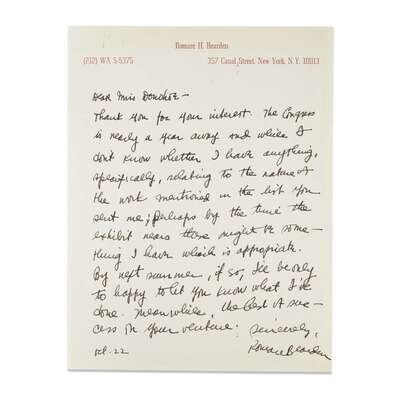 Romare H. Bearden
(212) WA 5-5375
357 Canal Street, New York, N.Y. 10013
Dear Miss Donohoe —
Thank you for your interest. The Congress
is nearly a year away and while I
don't know whether I have anything,
specifically, relating to the nature of
the work mentioned in the list you
sent me; Perhaps by the time the
exhibit nears there might be some-
thing I have which is appropriate.
By next summer, if so, I'll be only
to happy to let you know what I've
done. Meanwhile, the best of suc-
cess on your venture.
Sincerely,
Oct. 22
Romare Bearden